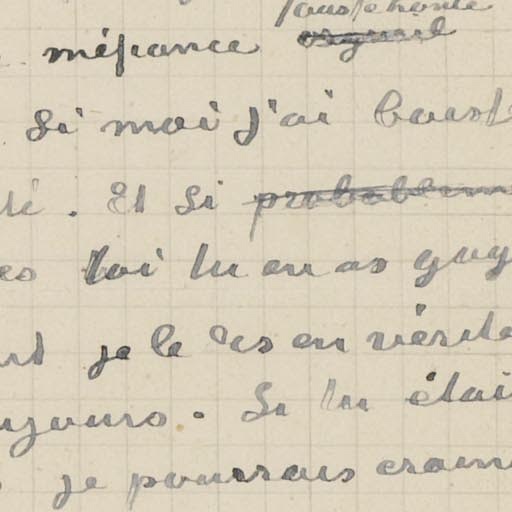 fausse honte
méfiance orgueil
si moi j'ai
té. Et si
toi tu en as gag
je le dis en vérité
ujours. Si tu étai
je pourrais crain